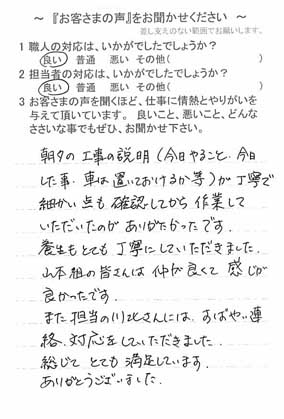 ～ 『お客さまの声』をお聞かせください ～
差し支えのない範囲でお願いします。
1 職人の対応は、いかがでしたでしょうか？
良い 普通 悪い その他( )
2 担当者の対応は、いかがでしたでしょうか？
良い 普通 悪い その他( )
3 お客さまの声を聞くほど、仕事に情熱とやりがいを
与えて頂いています。 良いこと、悪いこと、どんな
ささいな事でもぜひ、お聞かせ下さい。
朝夕の工事の説明(今日やること・今日
した事・車は置いておけるか等)が丁寧で
細かい点も確認してから作業して
いただいたのがありがたかったです.
養生もとても丁寧にしていただきました.
山本組の皆さんは仲が良くて感じが
良かったです.
また担当の川北さんには、すばやい連
絡、対応をしていただきました.
総じてとても満足しています.
ありがとうございました.